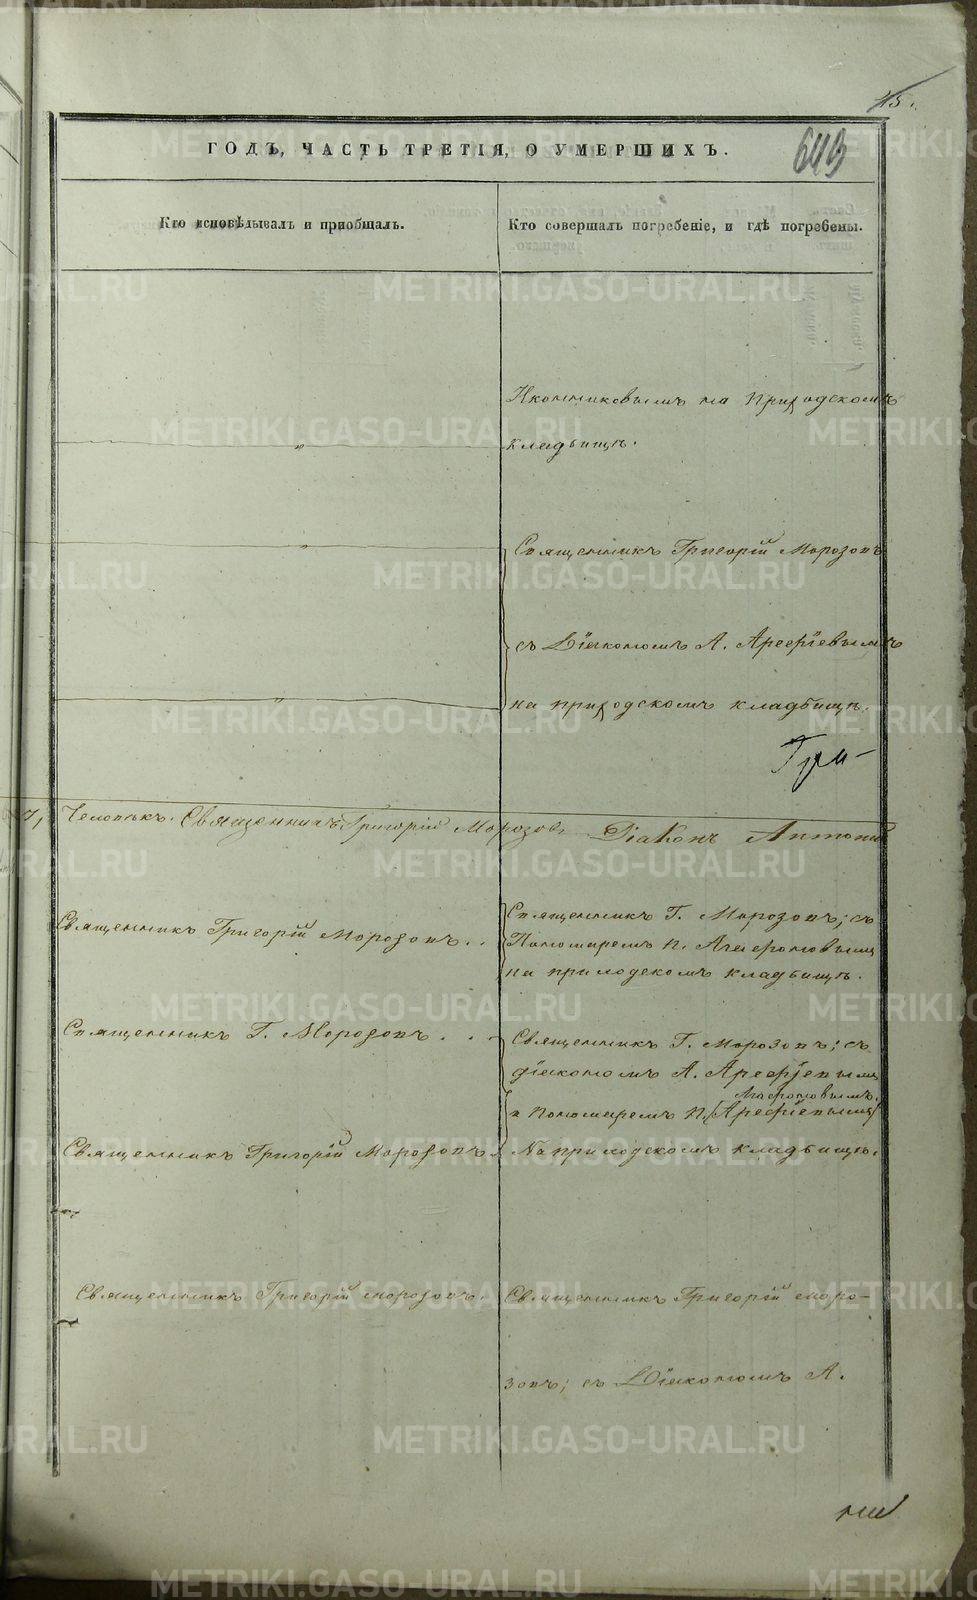 45.
ГОДЪ, ЧАСТЬ ТРЕТІЯ, О УМЕРШИХЪ.
643
Кто исповѣдывалъ и пріобщалъ.
Кто совершалъ погребеніе, и гдѣ погребены.
Иконниковымъ на приходскомъ
кладбищѣ.
Священникъ Григорій Морозовъ
съ Діакономъ А. Арефіевымъ
на приходскомъ кладбищѣ.
Гри-
Человѣкъ. Священникъ Григорій Морозовъ Діаконъ Антоній
Священникъ Григорій Морозовъ..
Священникъ Г. Морозовъ; съ
Пономаремъ П. Агафоновымъ
на приходскомъ кладбищѣ.
Священникъ Г. Морозовъ...
Священникъ Г. Морозовъ; съ
діакономъ А. Арефіевымъ
Агафоновымъ.
и пономаремъ П. (Арефіевымъ)
Священникъ Григорій Морозовъ.
На приходскомъ кладбищѣ.
Священникъ Григорій Морозовъ.
Священникъ Григорій Моро-
зовъ; съ Діакономъ А.
METRIKI.GASO-URAL.RU